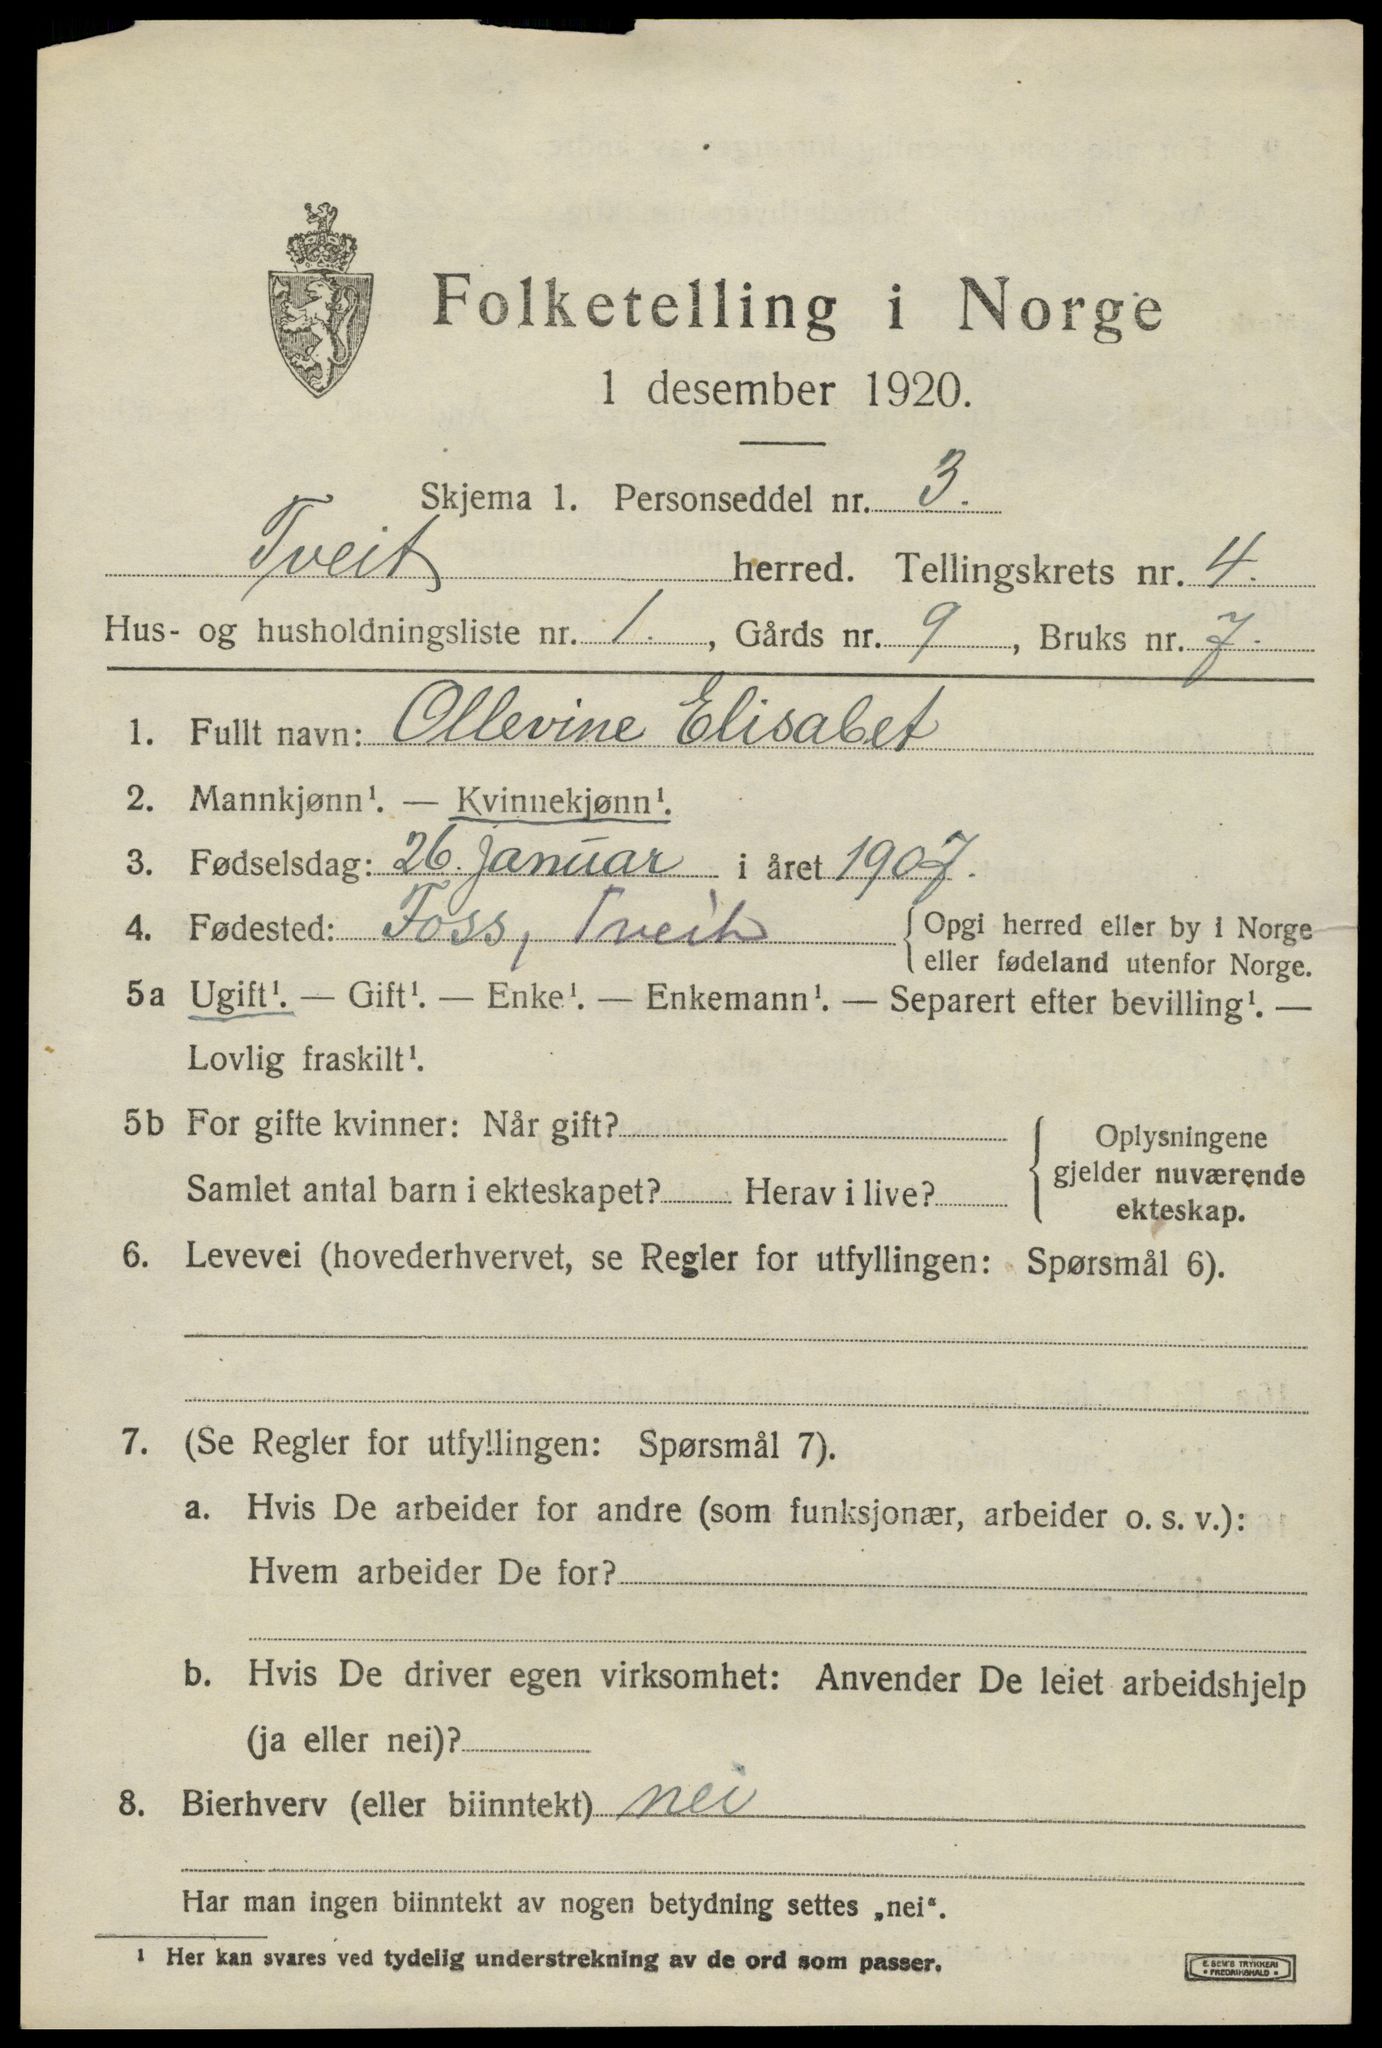 Folketelling i Norge
1 desember 1920.
Skjema 1. Personseddel nr. 3.
Tveit herred. Tellingskrets nr. 4.
Hus- og husholdningsliste nr. 1., Gårds nr. 9, Bruks nr. 7.
1. Fullt navn: Ollevine Elisabet
2. Mannkjønn¹. — Kvinnekjønn¹.
3. Fødselsdag: 26. januar i året 1907.
4. Fødested: Foss, Tveit { Opgi herred eller by i Norge
eller fødeland utenfor Norge.
5a Ugift¹. — Gift¹. — Enke¹. — Enkemann¹. — Separert efter bevilling¹. —
Lovlig fraskilt¹.
5b For gifte kvinner: Når gift?
Samlet antal barn i ekteskapet? Herav i live?
{ Oplysningene
gjelder nuværende
ekteskap.
6. Levevei (hovederhvervet, se Regler for utfyllingen: Spørsmål 6).
7. (Se Regler for utfyllingen: Spørsmål 7).
a. Hvis De arbeider for andre (som funksjonær, arbeider o. s. v.):
Hvem arbeider De for?
b. Hvis De driver egen virksomhet: Anvender De leiet arbeidshjelp
(ja eller nei)?
8. Bierhverv (eller biinntekt) nei
Har man ingen biinntekt av nogen betydning settes „nei“.
¹ Her kan svares ved tydelig understrekning av de ord som passer.
E. SEM'S TRYKKERI
• FREDRIKSHALD •